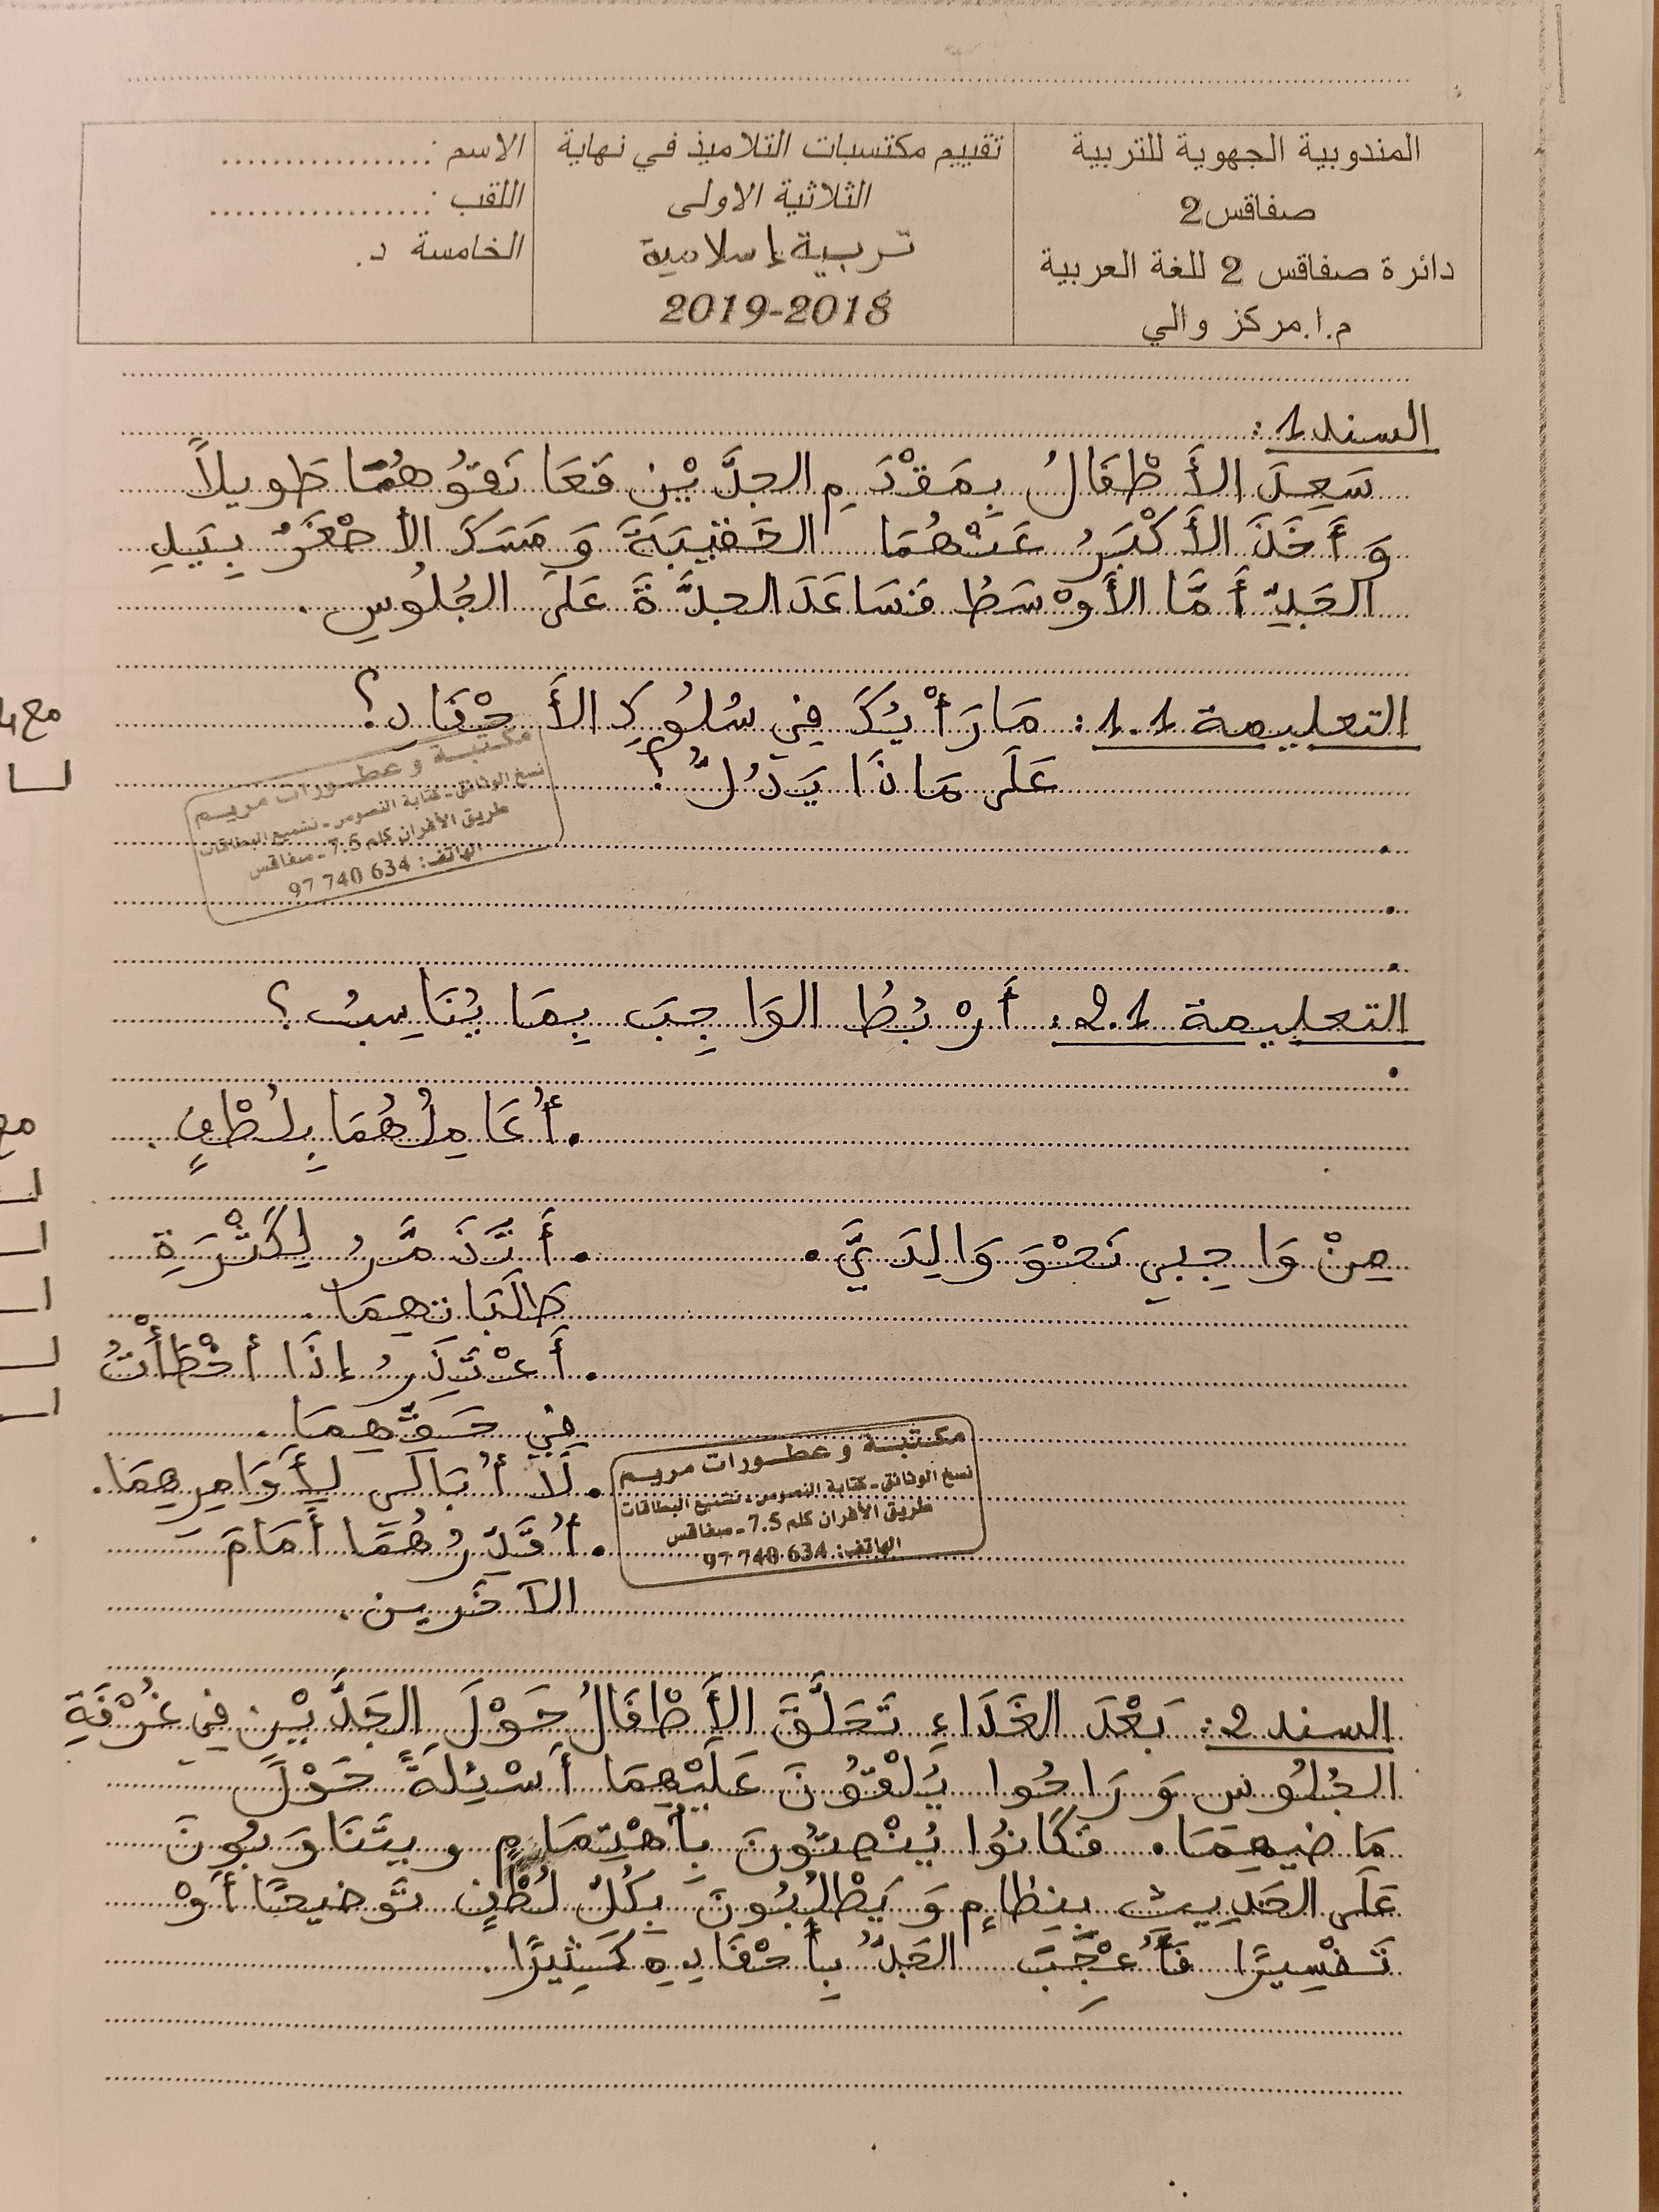 المندوبية الجهوية للتربية
صفاقس2
دائرة صفاقس 2 للغة العربية
م.ا.مركز والي
تقييم مكتسبات التلاميذ في نهاية
الثلاثية الاولى
تربية إسلامية
2019-2018
الاسم :..................
اللقب :...................
الخامسة د.
السند 1 :
سَعِدَ الأَطْفَالُ بِمَقْدَمِ الجدَّيْنِ فَعَانَقُوهُمَا طَويلاً
وَ أَخَذَ الأَكْبَرُ عَنْهُمَا الحَقيبَةَ وَ مَسَكَ الأَصْغَرُ بِيَدِ
الجَدِّ أَمَّا الأَوْسَطُ فَسَاعَدَ الجدَّةَ عَلَى الجُلُوسِ.
التعليمة 1.1 : مَا رَأْيُكَ فِي سُلُوكِ الأَحْفَادِ؟
عَلَى مَاذَا يَدُلُّ؟
مكتبة و عطورات مريم
نسخ الوثائق - كتابة النصوص - تشميع البطاقات
طريق الأفران كلم 7.5 - صفاقس
الهاتف: 634 740 97
التعليمة 2.1 : أَرْبُطُ الوَاجِبَ بِمَا يُنَاسِبُ؟
.أُعَامِلُهُمَا بِلُطْفٍ.
مِنْ وَاجِبِي نَحْوَ وَالِدَيَّ . . أَتَذَمَّرُ لِكَثْرَةِ
طَلَبَاتهِمَا.
. أَعْتَذِرُ إِذَا أَخْطَأْتُ
فِي حَقِّهِمَا.
. لَا أُبَالِي لِأَوَامِرِهِمَا.
. أُقَدِّرُهُمَا أَمَامَ
الآخَرين.
مكتبة و عطورات مريم
نسخ الوثائق - كتابة النصوص - تشميع البطاقات
طريق الأفران كلم 7.5 - صفاقس
الهاتف: 634 740 97
السند 2 : بَعْدَ الغَدَاءِ تَحَلَّقَ الأَطْفَالُ حَوْلَ الجَدَّيْنِ فِي غُرْفَةِ
الجُلُوسِ وَ رَاحُوا يُلْقُونَ عَلَيْهِمَا أَسْئِلَةً حَوْلَ
مَاضيهِمَا. فَكَانُوا يُنْصِتُونَ بِاهْتِمَامٍ و يتَنَاوَبُونَ
عَلَى الحَدِيثِ بِنِظَامٍ وَ يَطْلُبُونَ بِكُلِّ لُطْفٍ تَوضيحًا أَوْ
تَفْسِيرًا فَأُعْجِبَ الجَدُّ بِأَحْفَادِهِ كَثِيرًا.